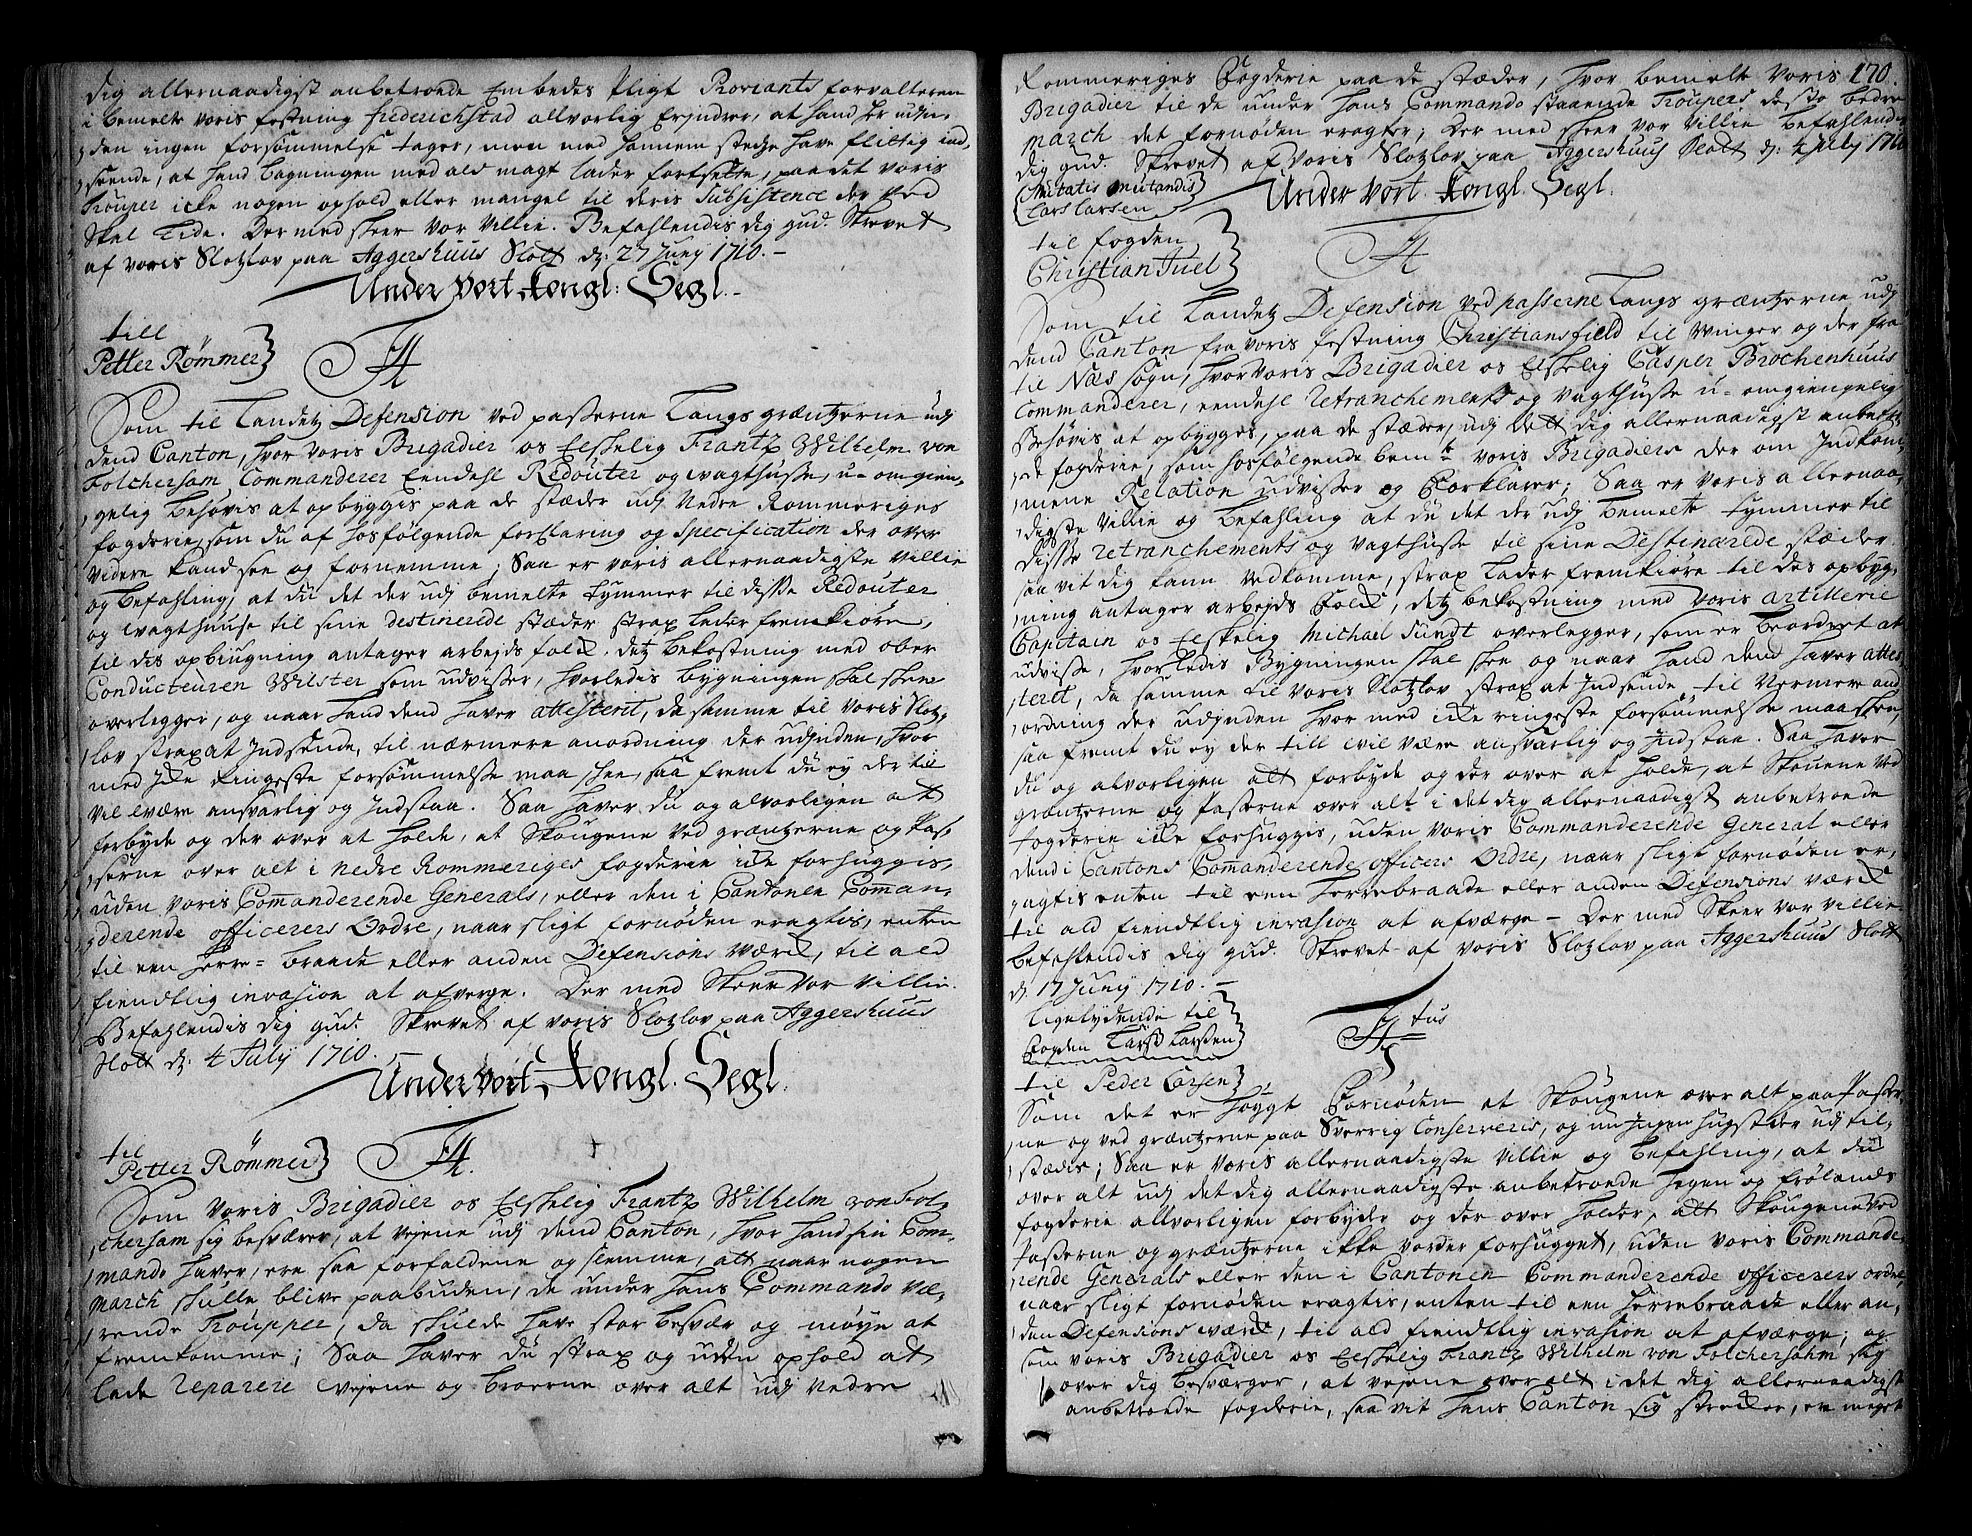 dig allernaadigst anbetroede Embedes Pligt Proviants forvalteren
i bemelte voris festning friderichstad alvorlig Erindrer, at hand her udin,
,den ingen forsømmelse tager, men med hannem stedze have flittig ind,
,seende, at hand bagningen med ald magt lader fortsette, paa det voris
Trouper icke nogen ophold eller mangel til deris Subsistence der ved
skal Lide. Der med skeer vor villie. Befahlendis dig gud. Skrevet
af voris Slotzlov paa Aggershuus Slott dj: 27 Junij 1710.
Under vort Kongl: Segl.
till
Petter Rømmer
Som til Landetz Defension ved passerne Langs grentzerne udj
dend Canton, hvor voris Brigadier os Elskelig Frantz Wilhelm von
Folchersam Commanderer Eendehl Redouter og vagthusse, u-omgien,
,gelig behøvis at opbyggis paa de stæder udj Nedre Rommeriges
fogderie, som du af hosfølgende forklaring og Specification der over
videre kand see og fornemme; Saa er voris allernaadigste villie
og befahling, at du det der udj bemelte tymmer til disse Redouter
og vagthuuse til sine destinerede stæder strax lader fremkiøre,
til dis opbiugning antager arbejds folck, detz bekostning med ober
Conducteuren Wilster som udvisser, hvorledis bygningen skal skee
overlegger, og naar hand dend haver attesterit, da samme til voris Slotz,
,lov strax at Indsende, til nærmere anordning der udinden, hvor
med Icke Ringeste forsømmelsse maa skee, saa fremt du ey der til
vil være ansvarlig og Indstaa. Saa haver du og alvorligen att
forbyde og der over at holde, at Skougene ved grentzerne og Pas,
,serne over alt i nedre Rommeriges fogderie icke forhuggis,
uden voris Com̃anderende Generals, eller den i Cantonen Com̃an,
,derende officerers Ordre, naar sligt fornøden eragtis, enten
til een herre-braade eller anden Defensions værck, til ald
fiendtlig invasion at afverge. Der med Skeer vor villie.
Befahlendis dig gud. Skrevet af voris Slotzlov paa Aggershuus
Slott dj: 4 July 1710.
Under vort Kongl. Segl.
til
Petter Rømmer
Som voris Brigadier os Elskelig Frantz Wilhelm von Fol,
,chersam sig besværer, at vejene udj dend Canton, hvor hand sin Com,
,mando haver, ere saa forfaldene og slemme, att naar nogen
march skulle blive paabuden, de under hans Commando væ,
,rende Trouppee, da skulde have stor besvær og møye at
fremkomme; Saa haver du strax og uden ophold at
lade reparere vejene og broerne over alt udj Nedre
Rommeriges Fogderie paa de stæder, hvor bemelte voris 170.
Brigadier til de under hans Commando staaende Troupers desto bedre
march det fornøden eragter; Der med skeer vor villie befahlendis
dig gud. Skrevet af voris Slotzlov paa Aggershuus Slott dj: 4 july 1710
Mutatis mutandis
Lars Larsen
Under vort Kongl. Segl.
til fogden
Christian Juel
Som til Landetz Defension ved passerne Langs grentzerne udj
dend Canton fra voris festning Christiansfield til Winger og der fra
til Næs sogn, hvor voris Brigadier os Elskelig Casper Brochenhuus
Commanderer, eendehl retranchements og vagthusse u-omgiengelig
behøvis at opbygges, paa de stæder, udj dett dig allernaadigst anbetro,
,de fogderie, som hosfølgende bemte voris Brigadiers der om Indkom,
,mene Relation udvisser og Forklarer; Saa er voris allernaa,
,digste villie og befahling at du det der udj bemelte tymmer til
disse retranchements og vagthusse til sine Destinerede stæder
saa vit dig kann vedkomme, strax lader fremkiøre til des opbyg,
,ning antager arbejds Folck, detz bekostning med voris artillerie
Capitain os Elskelig Michael Sundt overlegger, som er beordret at
udvisse, hvorledis Bygningen skal skee og naar hand dend haver attes,
,terit, da samme til voris Slotzlov strax at Indsende, til Nermere and
,ordning der udjnden hvor med icke ringeste forsømmelsse maa skee,
saa fremt du ey der till vil være ansvarlig og Indstaa. Saa haver
du og alvorligen att forbyde og der over at holde, at Skouene ved
grentzerne og Passerne over alt i det dig allernaadigst anbetroede
fogderie icke forhuggis, uden voris Commanderende General eller
dend i Cantons Comanderende officers Ordre, naar sligt fornøden er,
,agtis enten til een herrebraade eller anden Defensions værck
til ald fiendtlig invasion at afværge - Der med Skeer vor villie
befahlendis dig gud. Skrevet af voris Slotzlov paa Aggershuus Slott
dj. 17 Junij 1710.
ligelydende til
Fogden Lars Larssen
til Peder Carsen
Som det er høygt Fornøden at Skougene over alt paa Passer,
,ne og ved grentzerne paa Sverrig Conserveris, og nu Ingen hugst der udj til,
,stædis; Saa er voris allernaadigste villie og befahling, at du
over alt udj det dig allernaadigste anbetroede hegen og frølands
fogderie allvorligen forbyder og der over holder, att Skougene ved
Passerne og grentzerne ikke vorder forhugget, uden voris Commande,
,rende Generals eller den i Cantonen Commanderende officerers ordre
naar sligt fornøden eragtis, enten til een herrebraade eller an,
,den Defensions værck, til ald fiendtlig invasion at afværge; og
som voris Brigadier os Elskelig Frantz Wilhelm von Folchersahm sig
over dig besværger, at vejene over alt i det dig allernaadigst
anbetroede fogderie, saa vit hans Canton sig strecker, er meget